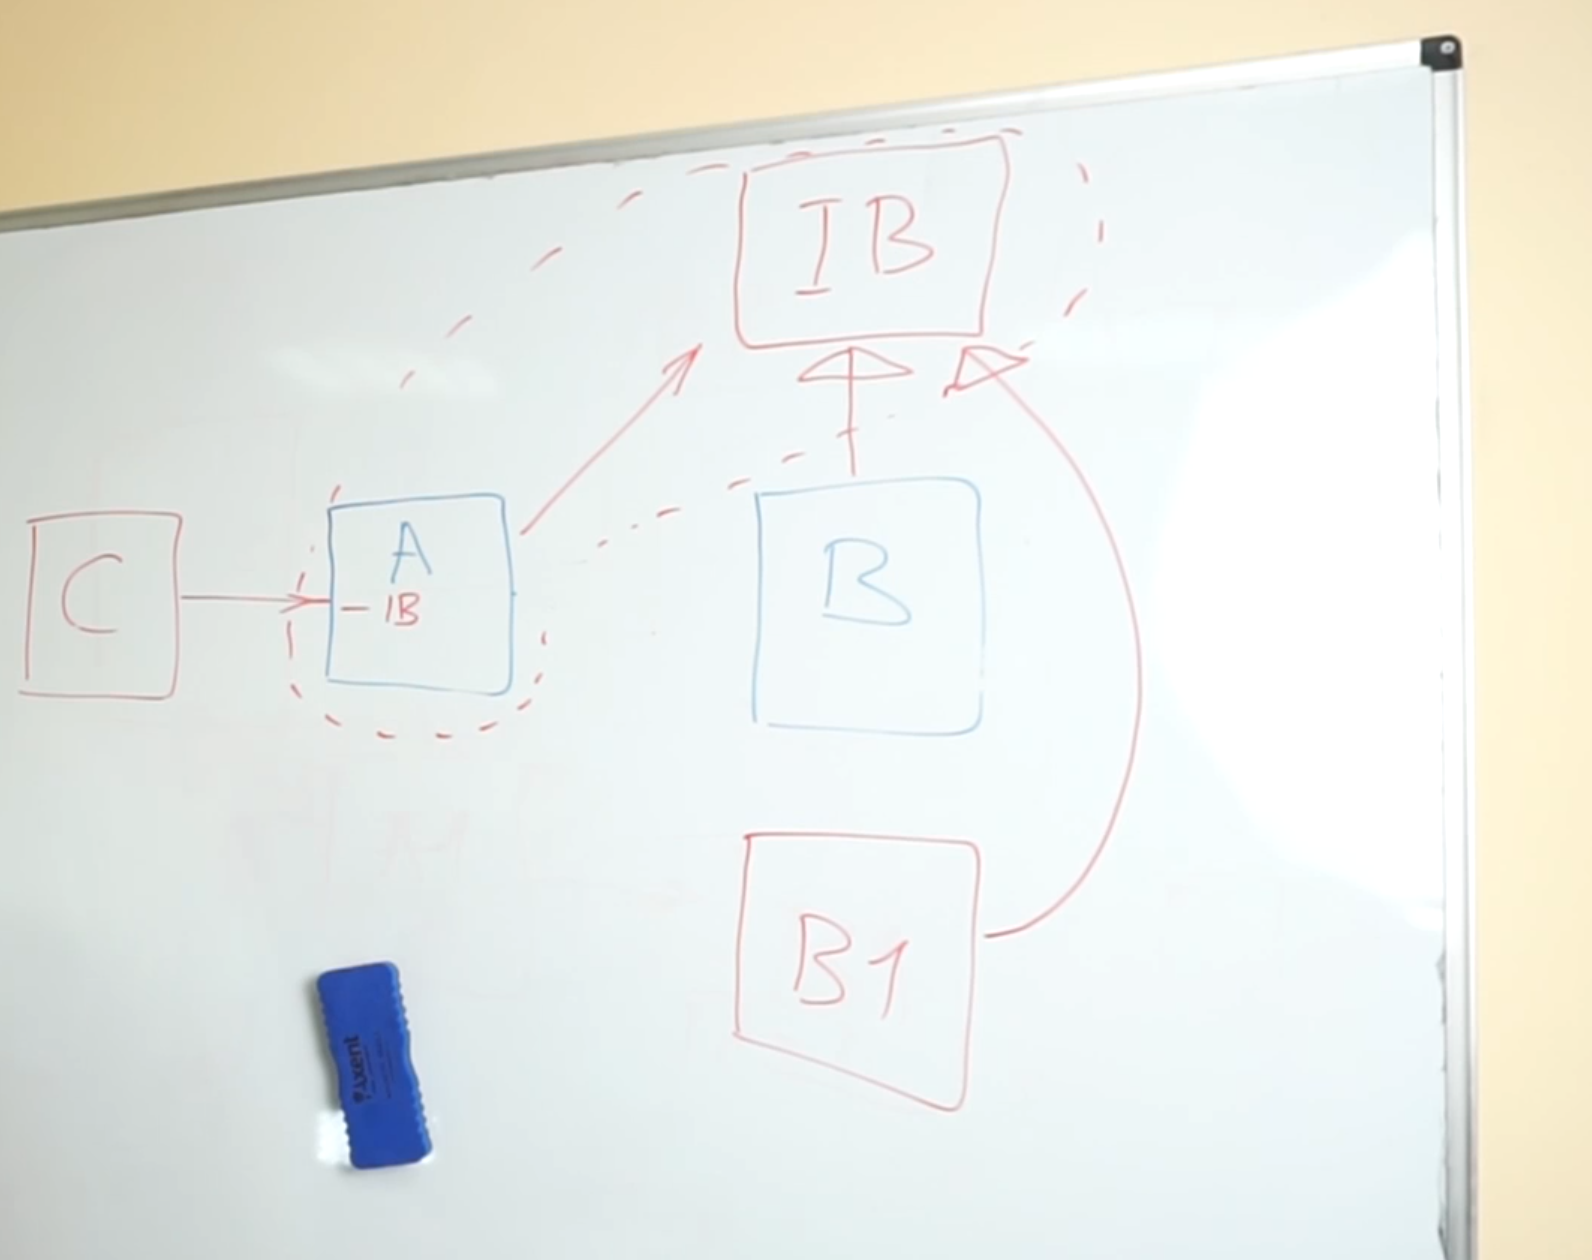 IB
C
A
– IB
B
B1
Axent